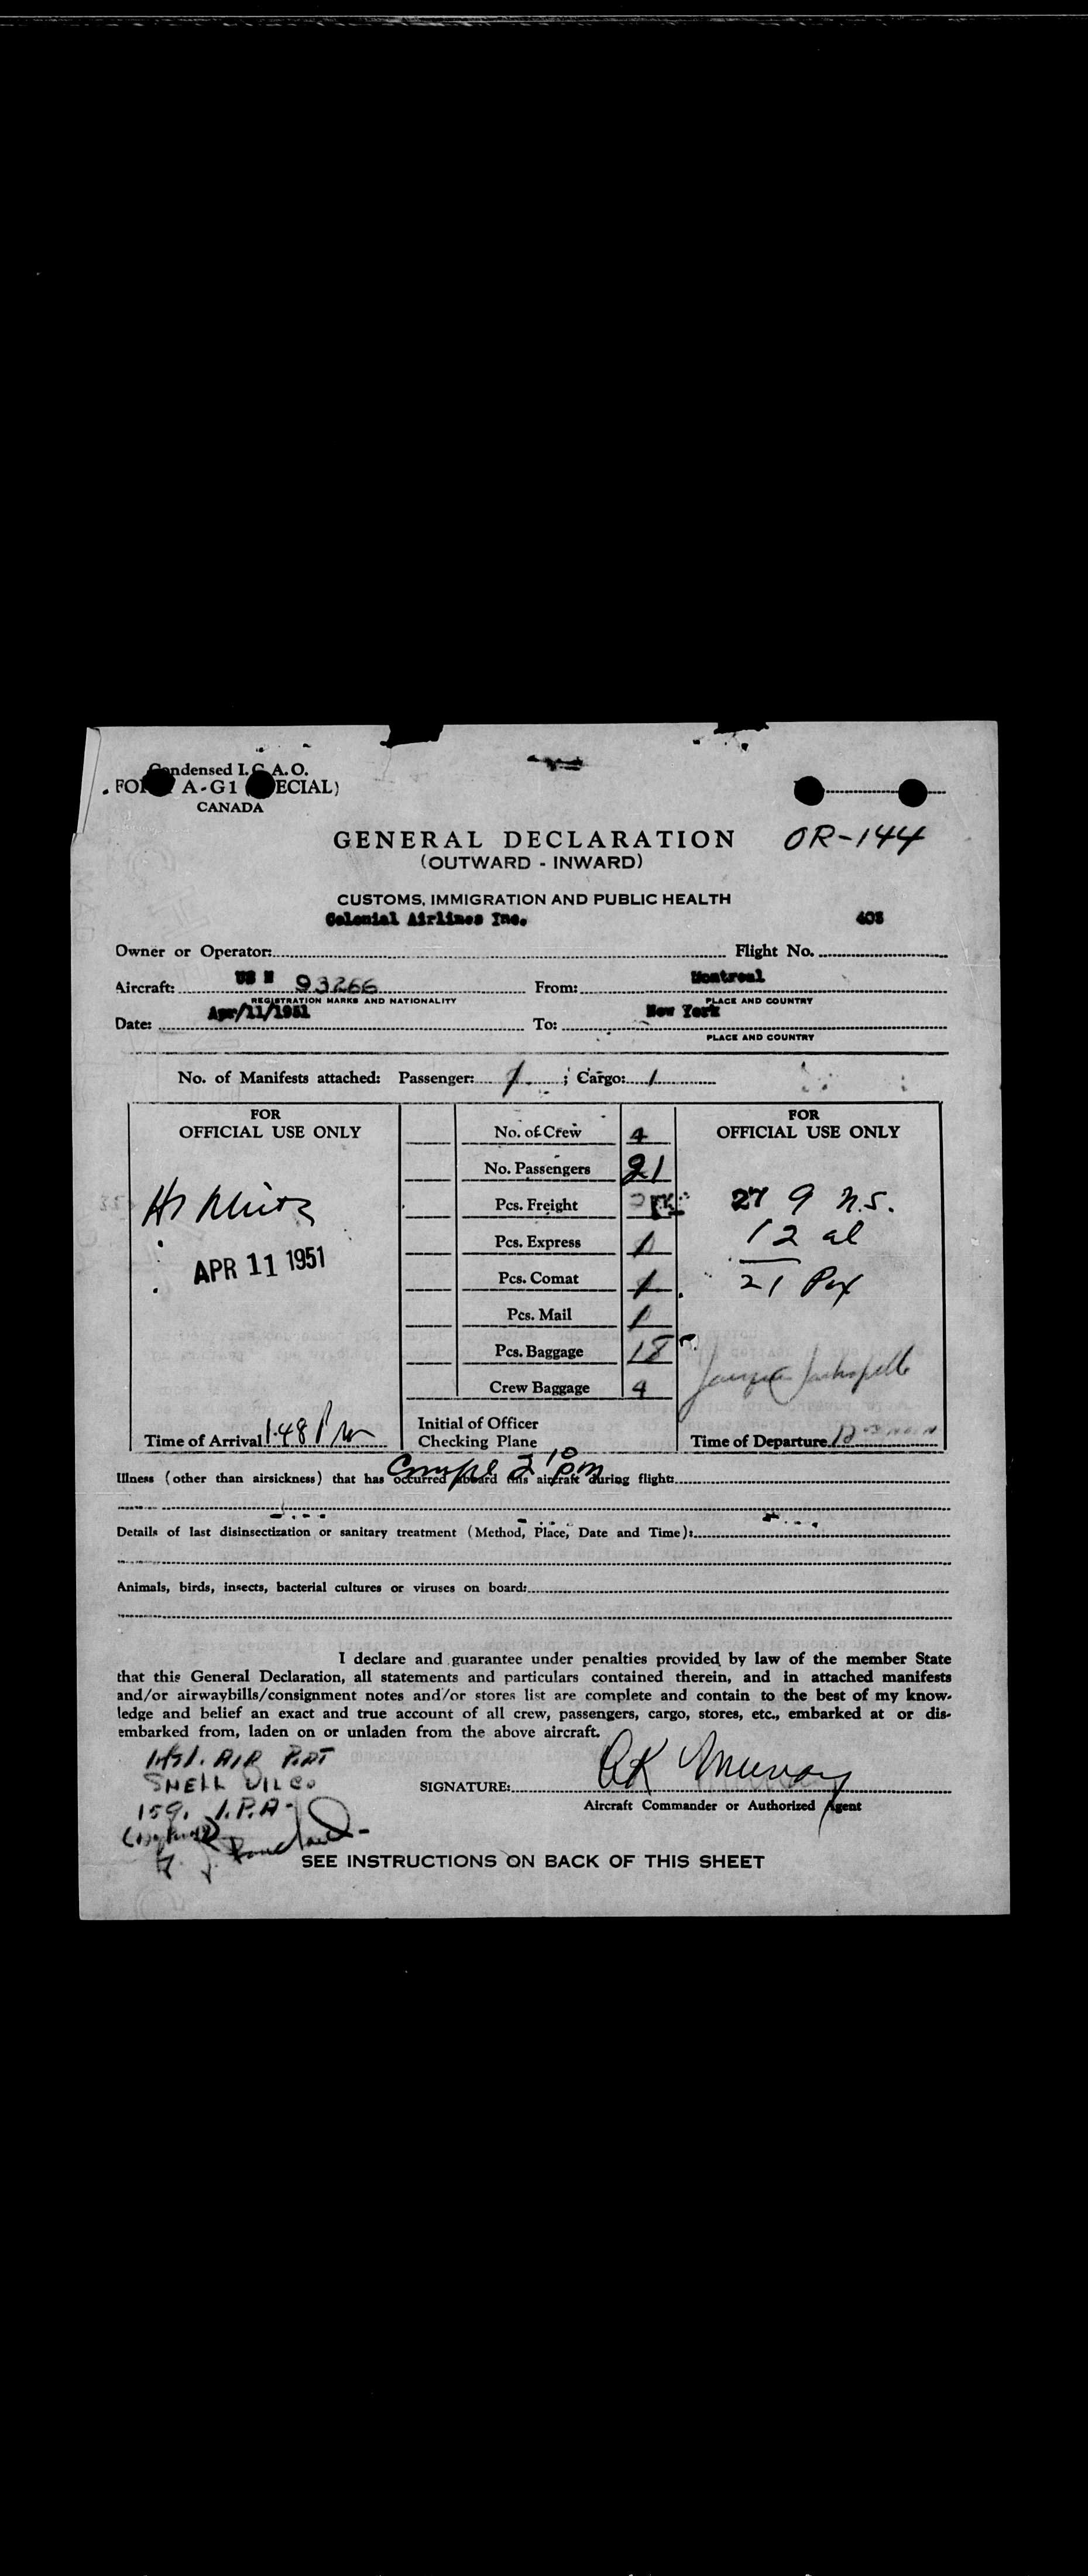 Condensed I.C.A.O.
FORM A-G1 (SPECIAL)
CANADA
OR-144
GENERAL DECLARATION
(OUTWARD - INWARD)
CUSTOMS, IMMIGRATION AND PUBLIC HEALTH
Colonial Airlines Inc. 403
Owner or Operator: Flight No.
Aircraft: US N 93266 From: Montreal
REGISTRATION MARKS AND NATIONALITY PLACE AND COUNTRY
Date: Apr/11/1951 To: New York
PLACE AND COUNTRY
No. of Manifests attached: Passenger: 1 ; Cargo: 1
FOR
OFFICIAL USE ONLY
APR 11 1951
Time of Arrival 1.48 Pm
No. of Crew 4
No. Passengers 21
Pcs. Freight
Pcs. Express 1
Pcs. Comat 1
Pcs. Mail 1
Pcs. Baggage 18
Crew Baggage 4
Initial of Officer
Checking Plane
FOR
OFFICIAL USE ONLY
27 9 n.s.
12 al
21 Pax
Time of Departure 12
Compl 2 10 pm
Illness (other than airsickness) that has occurred aboard this aircraft during flight:
Details of last disinsectization or sanitary treatment (Method, Place, Date and Time):
Animals, birds, insects, bacterial cultures or viruses on board:
I declare and guarantee under penalties provided by law of the member State
that this General Declaration, all statements and particulars contained therein, and in attached manifests
and/or airwaybills/consignment notes and/or stores list are complete and contain to the best of my know-
ledge and belief an exact and true account of all crew, passengers, cargo, stores, etc., embarked at or dis-
embarked from, laden on or unladen from the above aircraft.
AIR
SHELL OIL Co
159. I.P.A.
SIGNATURE: AK Murray
Aircraft Commander or Authorized Agent
SEE INSTRUCTIONS ON BACK OF THIS SHEET